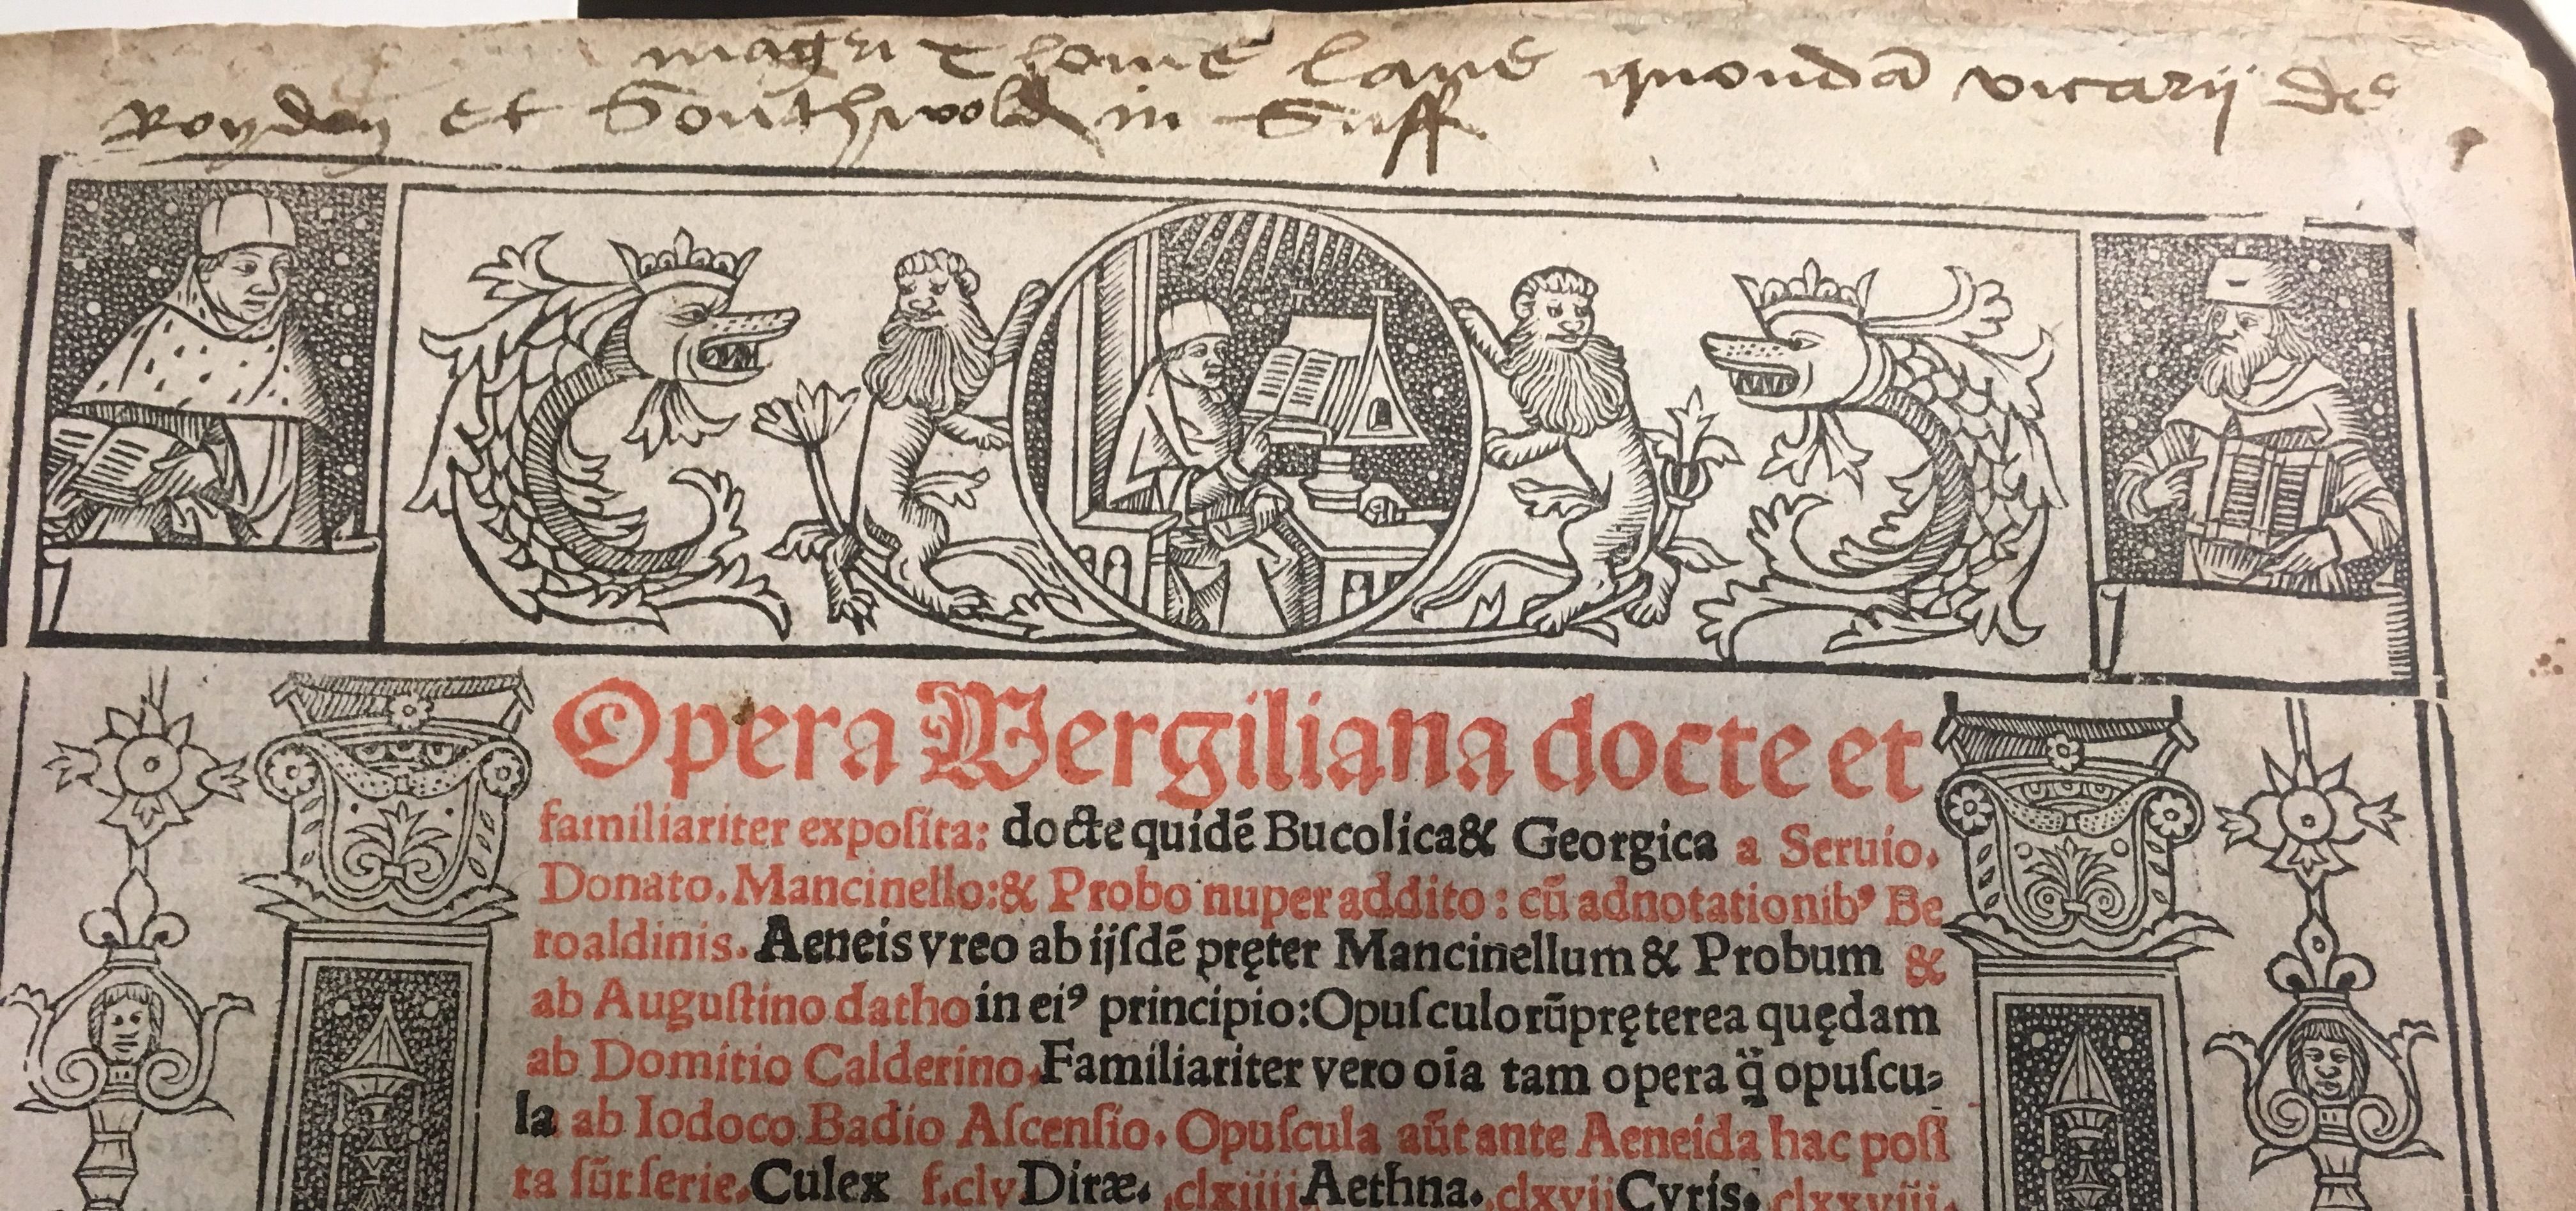 magri Thome Lane quondā vicarij de
Roydon et Southwold in Suff
Opera Vergiliana docte et
familiariter expoſita: docte quidē Bucolica & Georgica a Seruio.
Donato. Mancinello: & Probo nuper addito: cū adnotationibꝰ Be
roaldinis. Aeneis vreo ab ijſdē pręter Mancinellum & Probum &
ab Auguſtino datho in eiꝰ principio: Opuſculorū pręterea quędam
ab Domitio Calderino. Familiariter vero oia tam opera q̈ opuſcu⸗
la ab Iodoco Badio Aſcenſio. Opuſcula aūt ante Aeneida hac poſi
ta ſūt ſerie. Culex f.clv Diræ. .clxiiii. Aethna. .clxvii Cyris. .clxxviii.